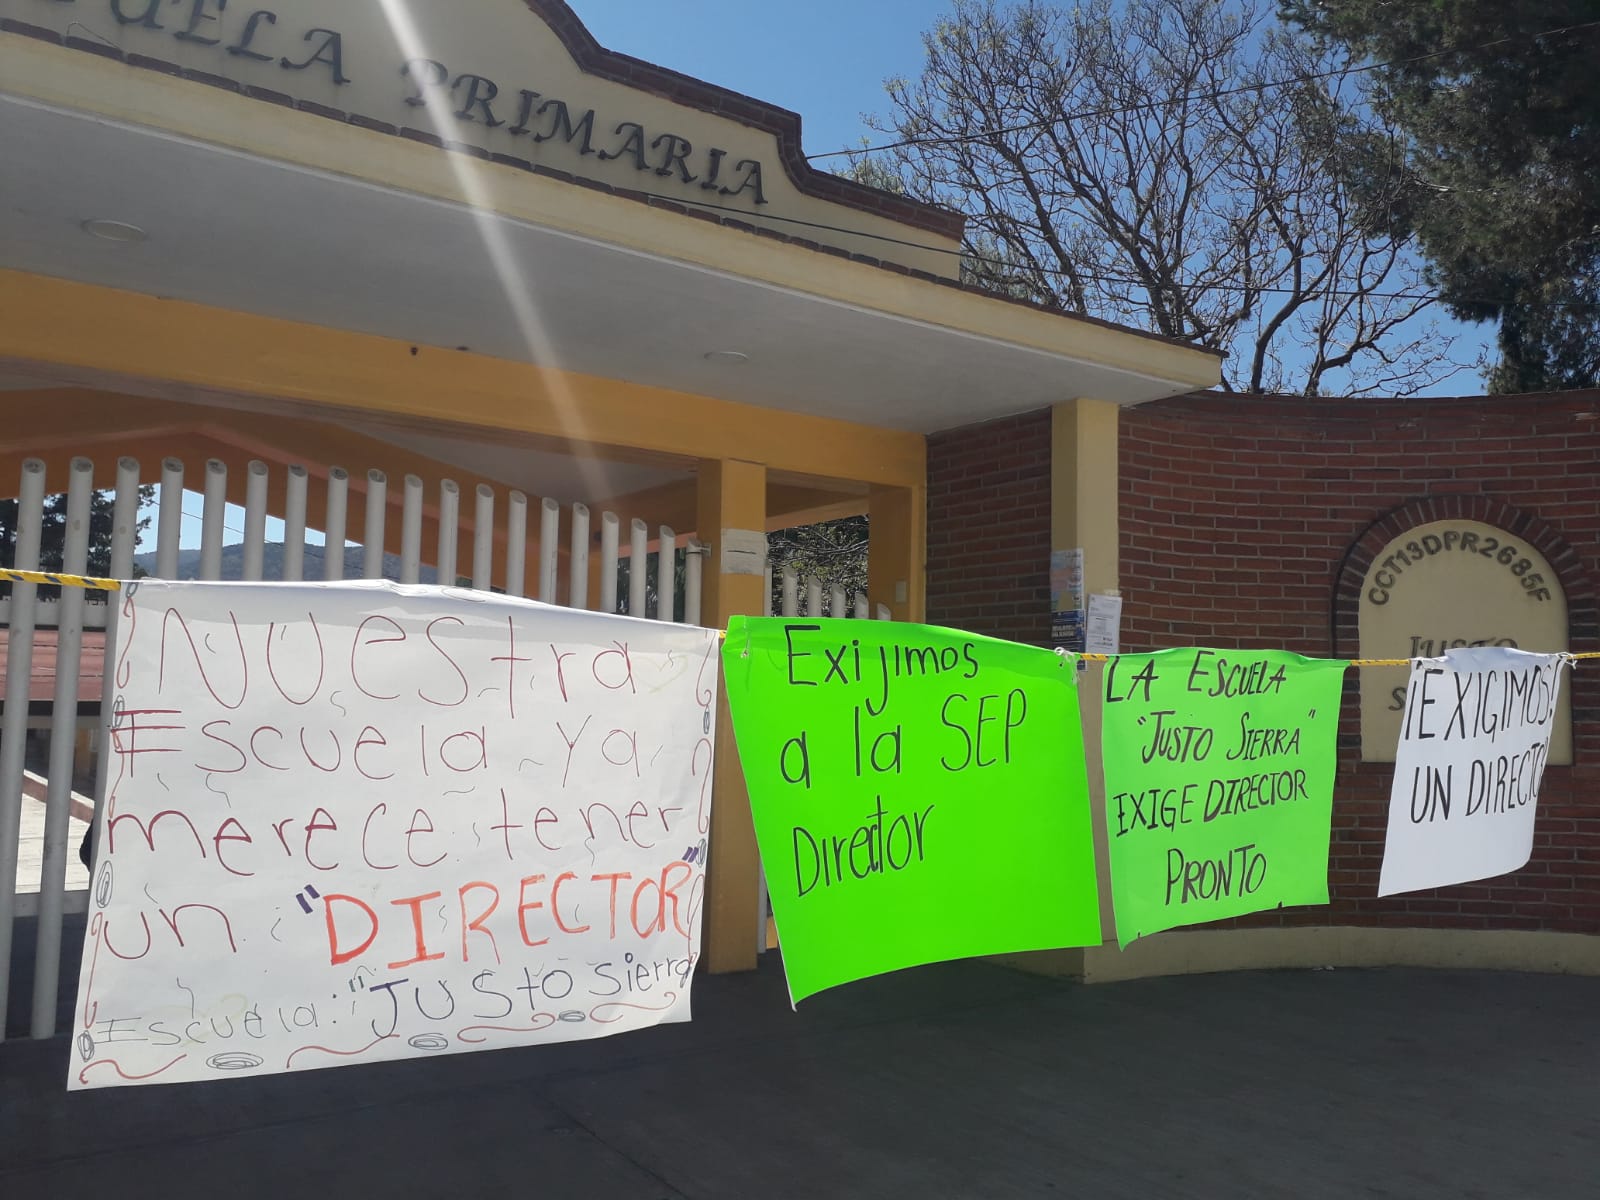 PRIMARIA
CCT13DPR2685F
JUSTO
Nuestra
Escuela ya
merece tener
un "DIRECTOR"
Escuela: "Justo Sierra
Exijimos
a la SEP
Director
LA ESCUELA
"JUSTO SIERRA"
EXIGE DIRECTOR
PRONTO
¡EXIGIMOS!
UN DIRECTO